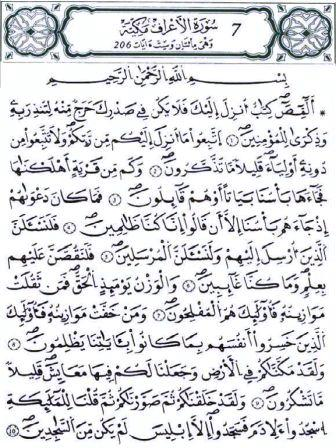 7 سُورَةُ الأَعْرَافِ مَكِّيَّة
وَهْىَ مِائَتَانِ وَسِتُّ ءَايَات 206
بِسْمِ اللَّهِ الرَّحْمَٰنِ الرَّحِيمِ
أَلَمِّصَ كِتَٰبٌ انزِلَ إِلَيْكَ فَلَا يَكُن فِي صَدْرِكَ حَرَجٌ مِّنْهُ لِتُنذِرَ بِهِ
وَذِكْرَىٰ لِلْمُومِنِينَ ① اَتَّبِعُوا مَا أُنزِلَ إِلَيْكُم مِّن رَّبِّكُمْ وَلَا تَتَّبِعُوا مِن
دُونِهِ أَوْلِيَاءَ قَلِيلًا مَّا تَذَّكَّرُونَ ② وَكَم مِّن قَرْيَةٍ اَهْلَكْنَٰهَا
فَجَاءَهَا بَأْسُنَا بَيَٰتًا أَوْ هُمْ قَائِلُونَ ③ فَمَا كَانَ دَعْوَىٰهُمُ
إِذْ جَاءَهُم بَأْسُنَا إِلَّا أَن قَالُوا إِنَّا كُنَّا ظَٰلِمِينَ ④ فَلَنَسْـَٔلَنَّ
الَّذِينَ أُرْسِلَ إِلَيْهِمْ وَلَنَسْـَٔلَنَّ الْمُرْسَلِينَ ⑤ فَلَنَقُصَّنَّ عَلَيْهِم
بِعِلْمٍ وَمَا كُنَّا غَائِبِينَ ⑥ وَالْوَزْنُ يَوْمَئِذٍ الْحَقُّ فَمَن ثَقُلَتْ
مَوَٰزِينُهُ فَأُوْلَٰئِكَ هُمُ الْمُفْلِحُونَ ⑦ وَمَنْ خَفَّتْ مَوَٰزِينُهُ فَأُوْلَٰئِكَ
الَّذِينَ خَسِرُوا أَنفُسَهُم بِمَا كَانُوا بِـَٔايَٰتِنَا يَظْلِمُونَ ⑧
وَلَقَدْ مَكَّنَّٰكُمْ فِي الْأَرْضِ وَجَعَلْنَا لَكُمْ فِيهَا مَعَٰيِشَ قَلِيلًا
مَّا تَشْكُرُونَ ⑨ وَلَقَدْ خَلَقْنَٰكُمْ ثُمَّ صَوَّرْنَٰكُمْ ثُمَّ قُلْنَا لِلْمَلَٰئِكَةِ
اِسْجُدُوا لِأَدَمَ فَسَجَدُوا إِلَّا إِبْلِيسَ لَمْ يَكُن مِّنَ السَّٰجِدِينَ ⑩